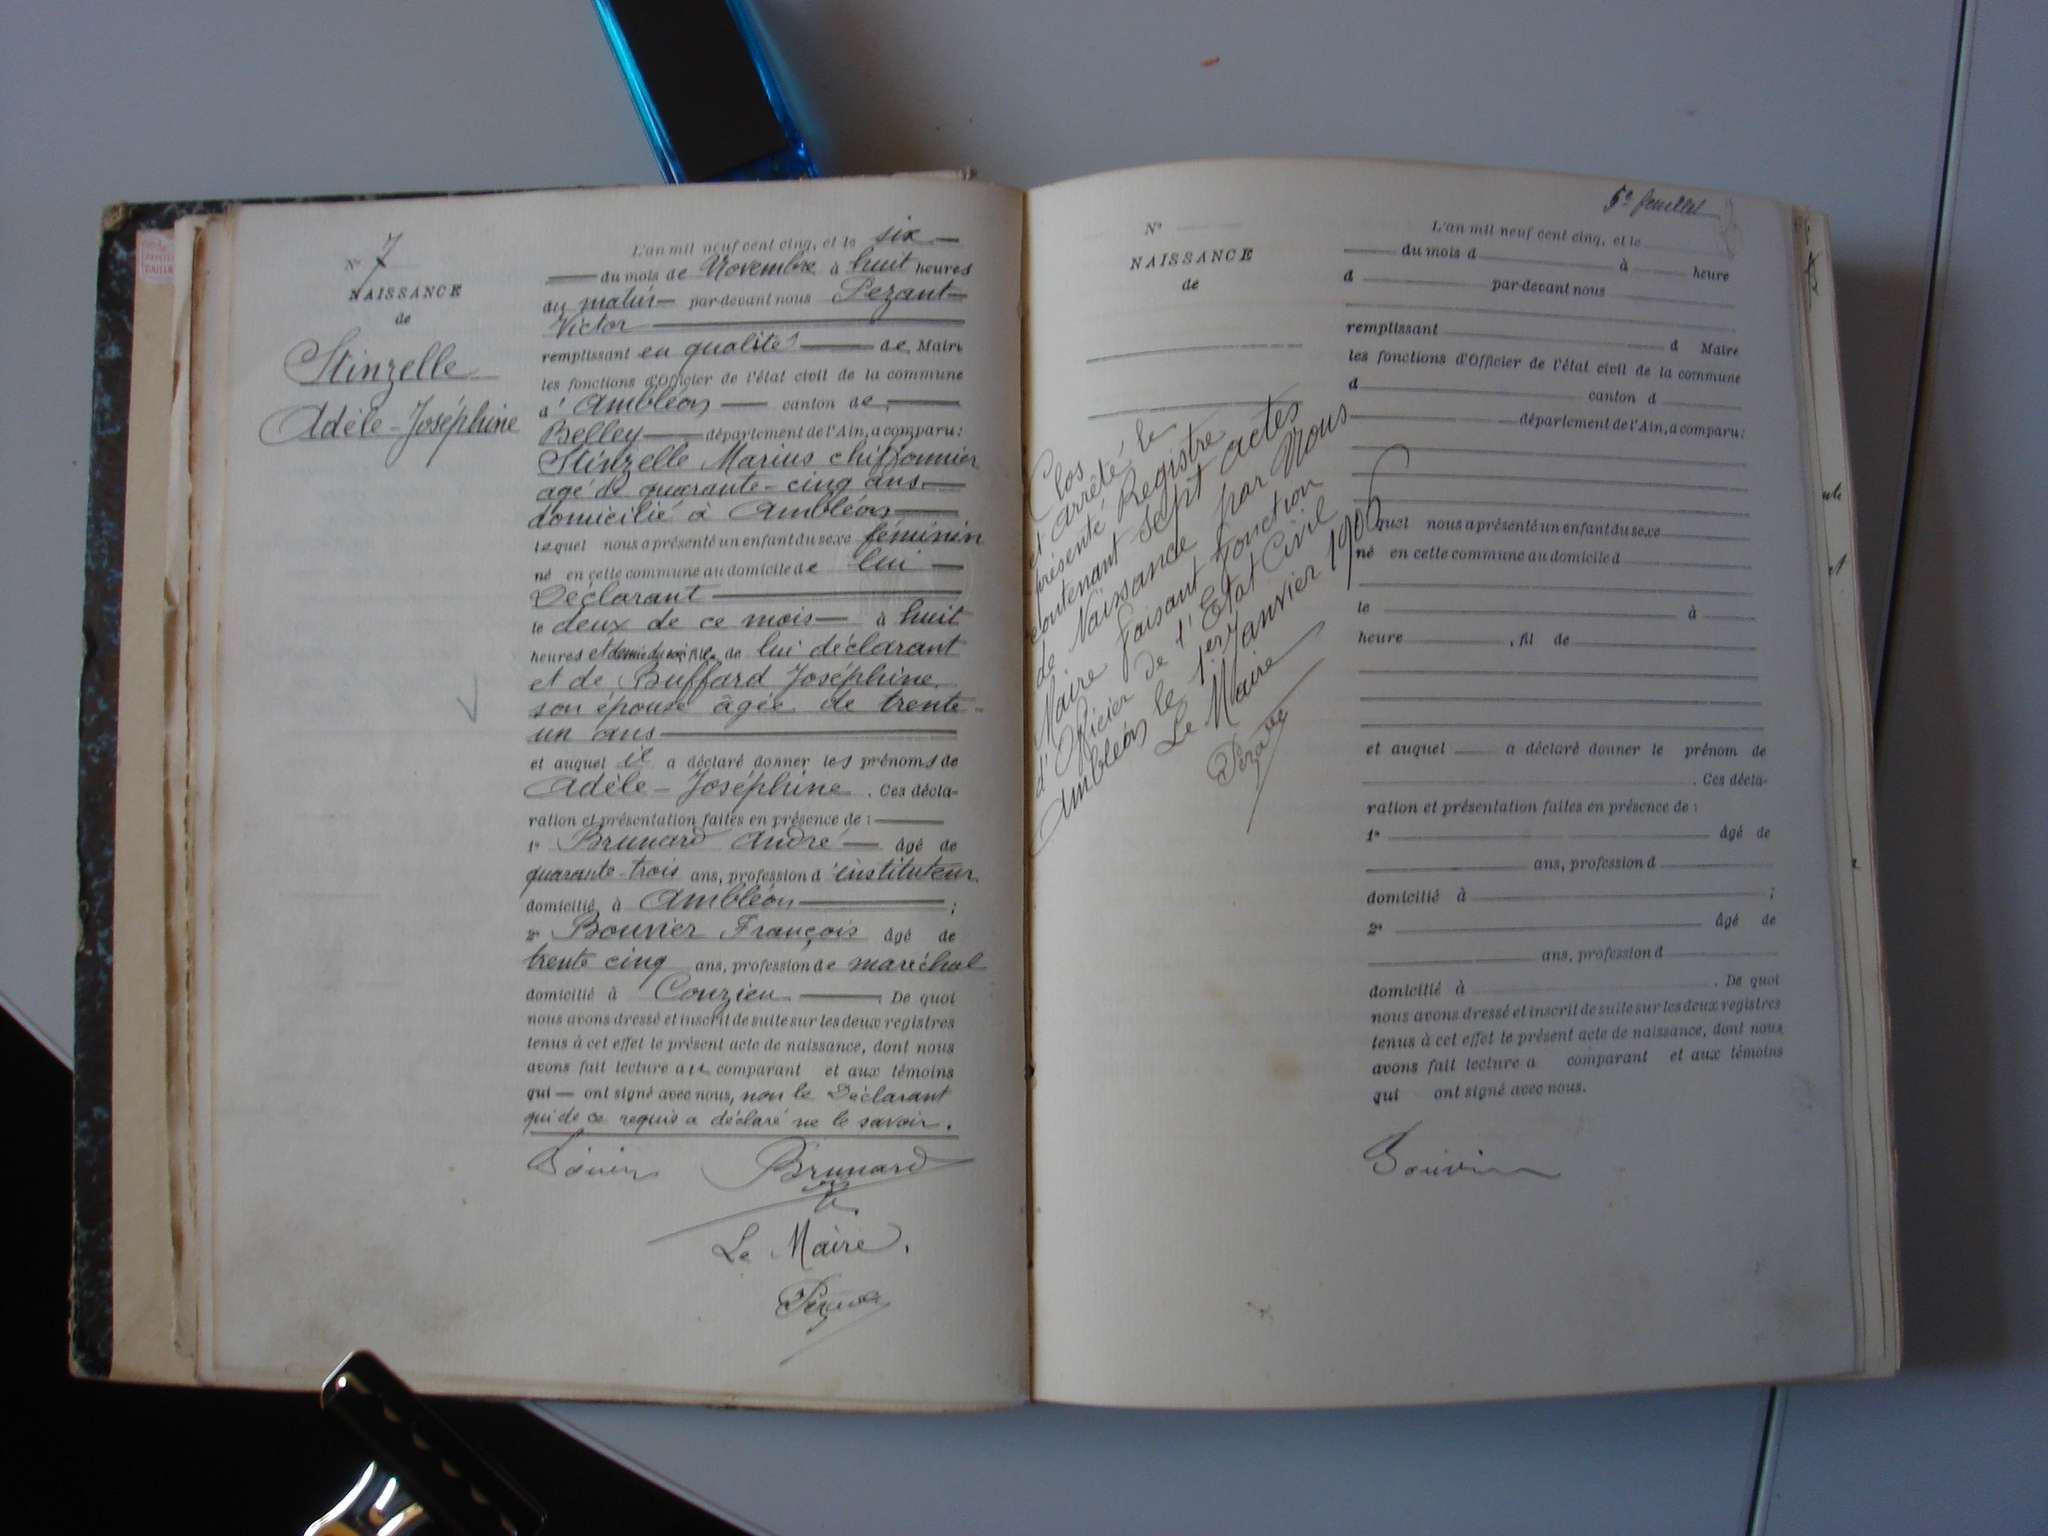 N° 7
NAISSANCE
de
Stinzelle
Adèle-Joséphine
L'an mil neuf cent cinq, et le six
du mois de Novembre à huit heures
du matin par-devant nous Pezant
Victor
remplissant en qualité de Maire
les fonctions d'Officier de l'état civil de la commune
d'Ambléon canton de
Belley département de l'Ain, a comparu :
Stinzelle Marius chiffonnier
agé de quarante-cinq ans
domicilié à Ambléon
lequel nous a présenté un enfant du sexe féminin
né en cette commune au domicile de lui
Déclarant
le deux de ce mois à huit
heures et demie du soir fille de lui déclarant
et de Buffard Joséphine
son épouse âgée de trente-
un ans
et auquel il a déclaré donner les prénoms de
Adèle-Joséphine. Ces décla-
ration et présentation faites en présence de :
1° Brunard André âgé de
quarante-trois ans, profession d'instituteur
domicilié à Ambléon ;
2° Bouvier François âgé de
trente cinq ans, profession de maréchal
domicilié à Conzieu. De quoi
nous avons dressé et inscrit de suite sur les deux registres
tenus à cet effet le présent acte de naissance, dont nous
avons fait lecture au comparant et aux témoins
qui ont signé avec nous, non le Déclarant
qui de ce requis a déclaré ne le savoir.
Brunard
Le Maire,
5e feuillet
N°
NAISSANCE
de
Clos
et arrêté le
présenté Registre
contenant sept actes
de Naissance par Nous
Maire faisant fonction
d'Officier de l'Etat Civil
Ambléon le 1er Janvier 1906
Le Maire
L'an mil neuf cent cinq, et le
du mois d à heure
d par-devant nous
remplissant d Maire
les fonctions d'Officier de l'état civil de la commune
d canton d
département de l'Ain, a comparu :
lequel nous a présenté un enfant du sexe
né en cette commune au domicile d
le à
heure , fil de
et auquel a déclaré donner le prénom de
. Ces décla-
ration et présentation faites en présence de :
1° âgé de
ans, profession d
domicilié à ;
2° âgé de
ans, profession d
domicilié à . De quoi
nous avons dressé et inscrit de suite sur les deux registres
tenus à cet effet le présent acte de naissance, dont nous
avons fait lecture a comparant et aux témoins
qui ont signé avec nous.